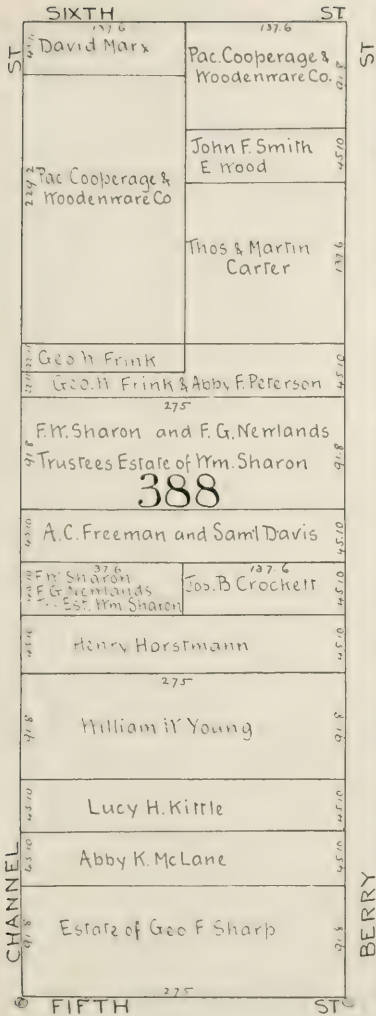 SIXTH ST
ST
ST
137.6
137.6
David Marx
Pac. Cooperage &
Woodenware Co.
91.8
John F. Smith
E Wood
45.10
Pac Cooperage &
Woodenware Co
229.2
Thos & Martin
Carter
137.6
Geo W Frink
Geo. W Frink & Abby F. Peterson
45.10
275
F.W. Sharon and F.G. Newlands
Trustees Estate of Wm. Sharon
91.8
91.8
388
A.C. Freeman and Saml Davis
45.10
45.10
37.6
137.6
F W Sharon
F G Newlands
Est. Wm Sharon
Jos. B Crockett
45.10
Henry Horstmann
45.10
45.10
275
William W Young
91.8
91.8
Lucy H. Kittle
45.10
45.10
Abby K. McLane
45.10
45.10
Estate of Geo F Sharp
91.8
91.8
CHANNEL
BERRY
275
FIFTH ST